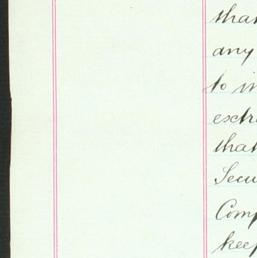 that
any
to in
extr
that
Secu
Comp
keep